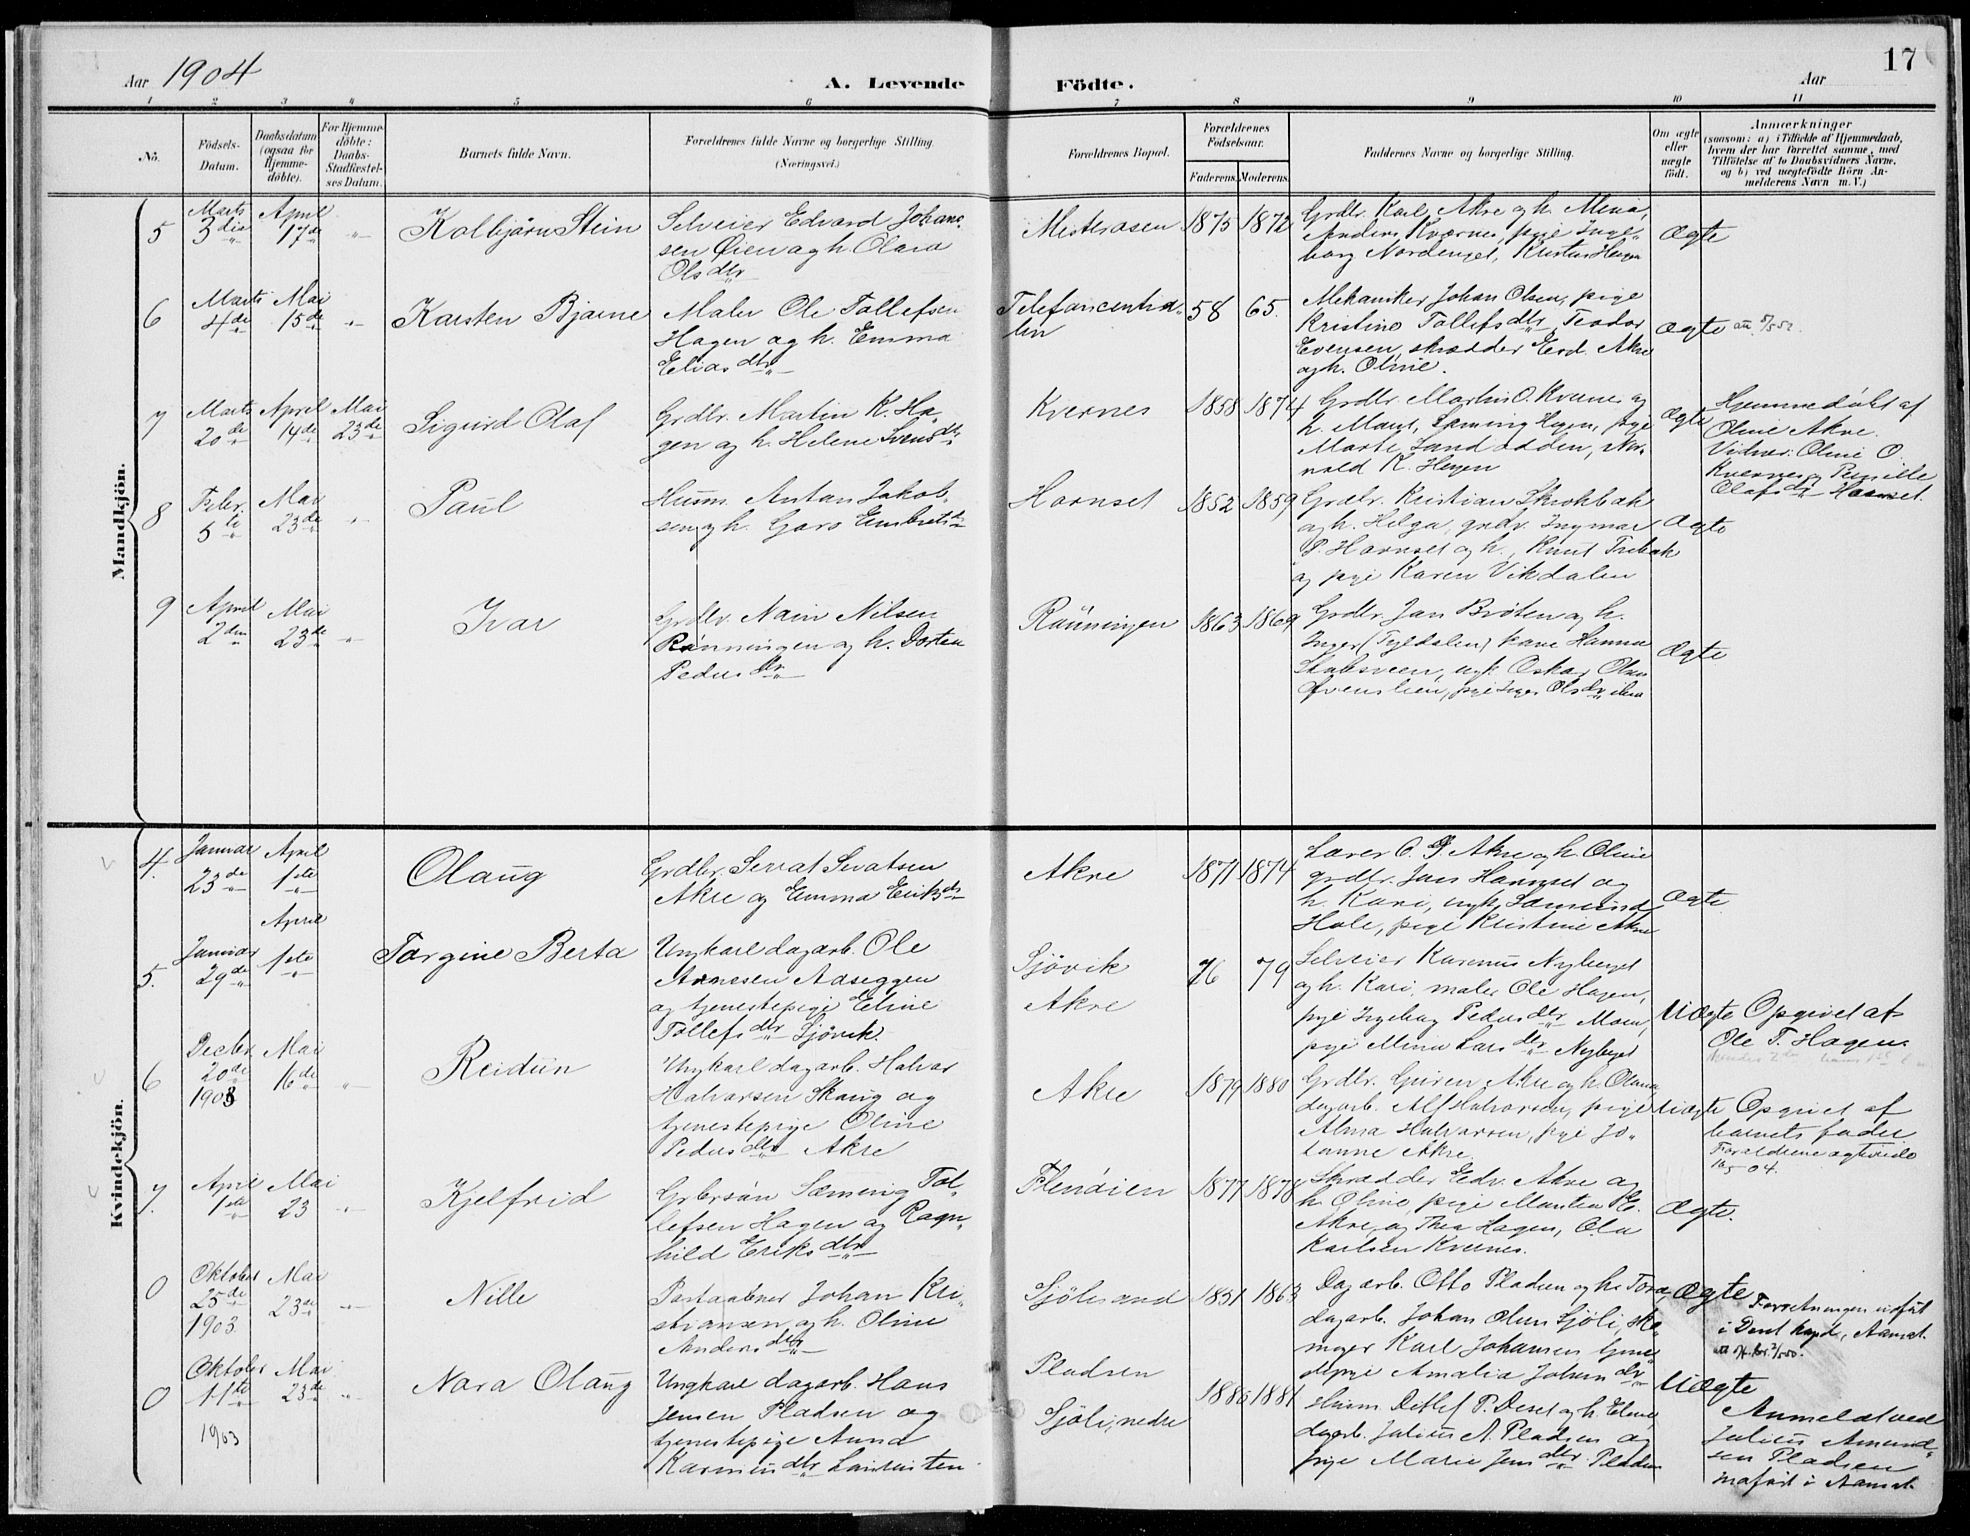 Aar 1904
A. Levende Födte.
Aar
17
1 2 3 4 5 6 7 8 9 10 11
No.
Födsels-
Datum.
Daabsdatum
(ogsaa for
Hjemme-
döbte).
For Hjemme-
döbte:
Daabs-
Stadfæstel-
ses Datum.
Barnets fulde Navn.
Forældrenes fulde Navne og borgerlige Stilling.
(Næringsvei.)
Forældrenes Bopæl.
Forældrenes
Födselsaar.
Faderens. Moderens.
Faddernes Navne og borgerlige Stilling.
Om ægte
eller
uægte
födt.
Anmærkninger
(saasom: a) i Tilfælde af Hjemmedaab,
hvem der har forrettet samme, med
Tilföielse af to Daabsvidners Navne,
og b) ved uægtefödte Börn An-
melderens Navn m. V.)
Mandkjön.
5
Marts
3die
April
17de
Kolbjörn Stein
Selveier Edvard Johan-
sen Øien og h. Olava
Olsdtr
1875 1872
Grdbr. Karl Akre og h. Mena,
Anders Kværnes, pige Inge-
borg Nordenget, Kristen Hagen
Ægte
6
Marts
4de
Mai
15de
Karsten Bjarne
Maler Ole Tollefsen
Hagen og h. Emma
Eliasdtr
Telefoncentra-
len
58 65.
Mekaniker Johan Olsen, pige
Kristine Tollefsdtr, Teodor
Evensen, skrædder Evd. Akre
og h. Oline.
Ægte
7
Marts
20de
April
14de
Mai
23de
Sigurd Olaf
Grdbr. Martin K. Ha-
gen og h. Helene Svendsdtr
Kvernes
1858 1874
Grdbr Martin O. Kvernes og
h. Marit, Sæming Hagen, pige
Marte Sandodden,
K. Hagen
Ægte
Hjemmedöbt af
Oline Akre.
Vidner: Oline O.
Kvernes og Pernille
Olafsdtr Harnset
8
Febr.
5te
Mai
23de
Paul
Husm. Anton Jakob-
sen og h. Guro Embretsdtr
Hornset
1852 1859
Grdbr. Kristian
og h. Helga, grdbr. Ingmar
P. Harnset og h., Knut
og pige Karen Vikdalen
Ægte
9
April
2den
Mai
23de
Ivar
Grdbr. Nain Nilsen
Rönningen og h. Dorten
Pedersdtr
Rönningen
1863 1869
Grdbr. Jon Broten og h.
Inger (Tyldalen) kone Hanna
ungk. Oskar Olsen
pige Inger Olsdtr
Ægte
Kvindekjön.
4.
Januar
23de
April
1ste
Olaug
Grdbr. Sevat Sevatsen
Akre og Emma Eriksdtr
Akre
1871 1874
Lærer O. P. Akre og h. Oline
grdbr. Jens Harnset og
h. Kari, ungk. Sæmund
Hole, pige Kristine Akre
Ægte
5.
Januar
29de
April
1ste
Torgine Berta
Ungkarl dagarb. Ole
Arnesen Aaseggen
og tjenestepige Eline
Tollefsdtr Sjövik.
Sjövik
Akre
76 79
Selveier Karenus Nyberget
og h. Kari, maler Ole Hagen,
pige Ingebog Pedersdtr Moen,
pige Mina Larsdtr Nyberget
Uægte
Opgivet af
Ole T. Hagen.
6
Decbr.
20de
1903
Mai
16de
Reidun
Ungkarl dagarb. Halvar
Halvorsen Skaug og
tjenestepige Oline
Pedersdtr Akre
Akre
1879 1880
Grdbr. Guren Akre og h. Olava,
dagarb. Alf Halvorsen, pige
Alma Halvorsen, pige Jo-
hanne Akre.
Uægte
Opgivet af
barnets fader.
Forældrene ægteviede
16 5 04.
7.
April
1ste
Mai
23
Kjelfrid
Grbrsön Sæming Tol-
lefsen Hagen og Ragn-
hild Eriksdtr
Flenöien
1877 1878
Skrædder Edv. Akre og
h. Oline, pige Mantea E.
Akre, og Thea Hagen, Ola
Karlsen Kvernes.
Ægte.
0
Oktober
25de
1903
Mai
23de
Nille
Postaabner Johan Kri-
stiansen og h. Oline
Andersdtr
Sjölisand
1851 1863
Dagarb. Otto Pladsen og h. Tora,
dagarb. Johan Olsen Sjöli, sko-
mager Karl Johansen
pige Amalia Johansdtr
Ægte
Forretningen udfört
i Aamot
0
Oktober
11te
1903
Mai
23de
Nora Olaug
Ungkarl dagarb. Hans
Jensen Pladsen og
tjenestepige Anna
Karinusdtr
Pladsen
Sjöli, nedre
1886 1881
Husm. Detlef P. Deset og h. Eline,
dagarb. Julius A. Pladsen og
pige Marie Jensdtr Pladsen
Uægte
Anmeldt ved
Julius Amund-
sen Pladsen
indfört i Aamot